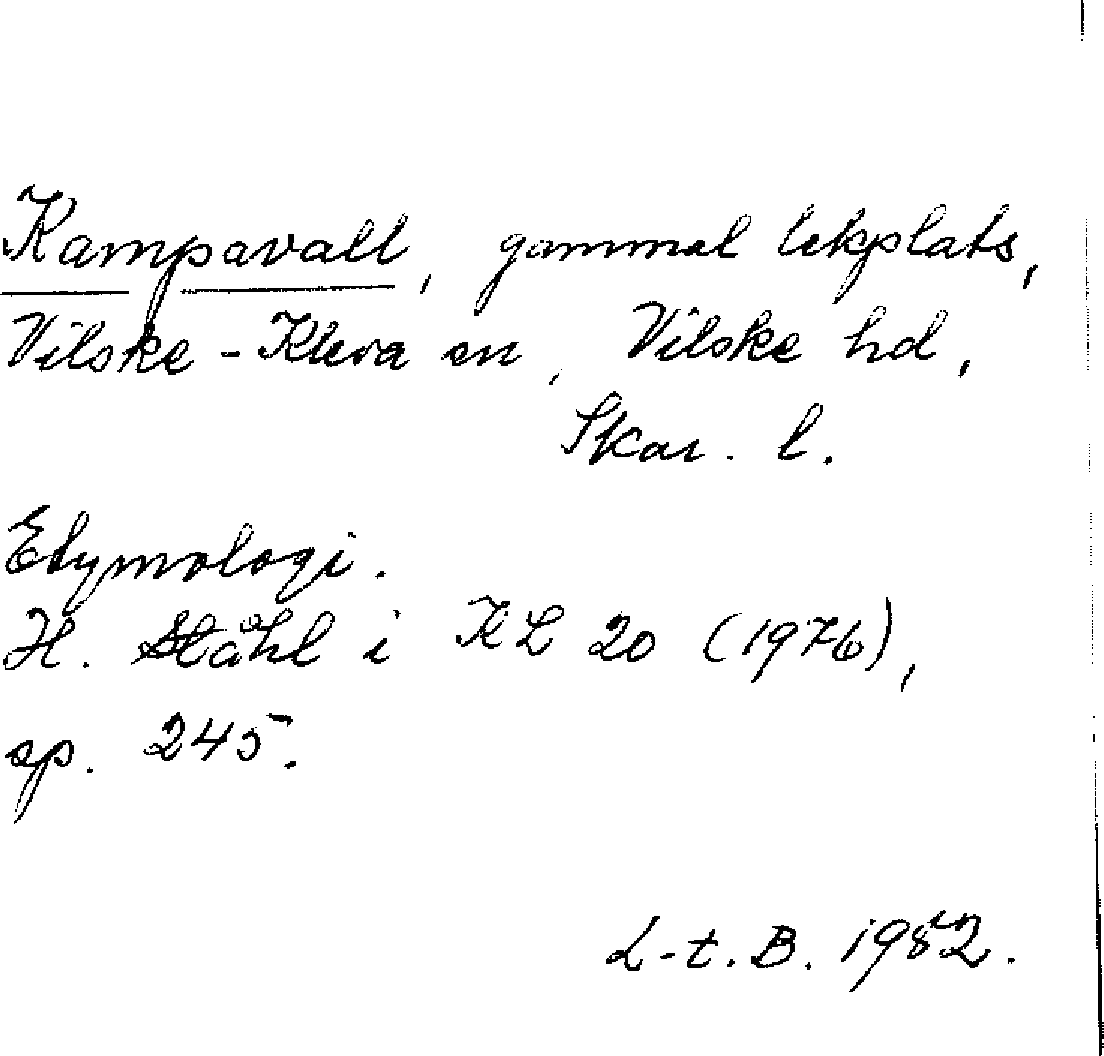 Kampavall, gammal lekplats,
Vilske-Kleva sn, Vilske hd,
Skar. l.
Etymologi.
H. Ståhl i KL 20 (1976),
sp. 245.
L-t. B. 1982.